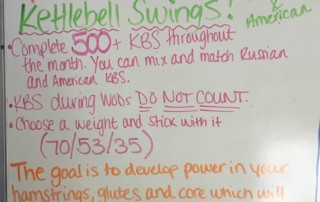 Kettlebell Swings!
& American
• Complete 500+ KBS throughout
the month. You can mix and match Russian
and American KBS.
• KBS during WODs DO NOT COUNT.
• Choose a weight and stick with it
(70/53/35)
The goal is to develop power in your
hamstrings, glutes and core which will